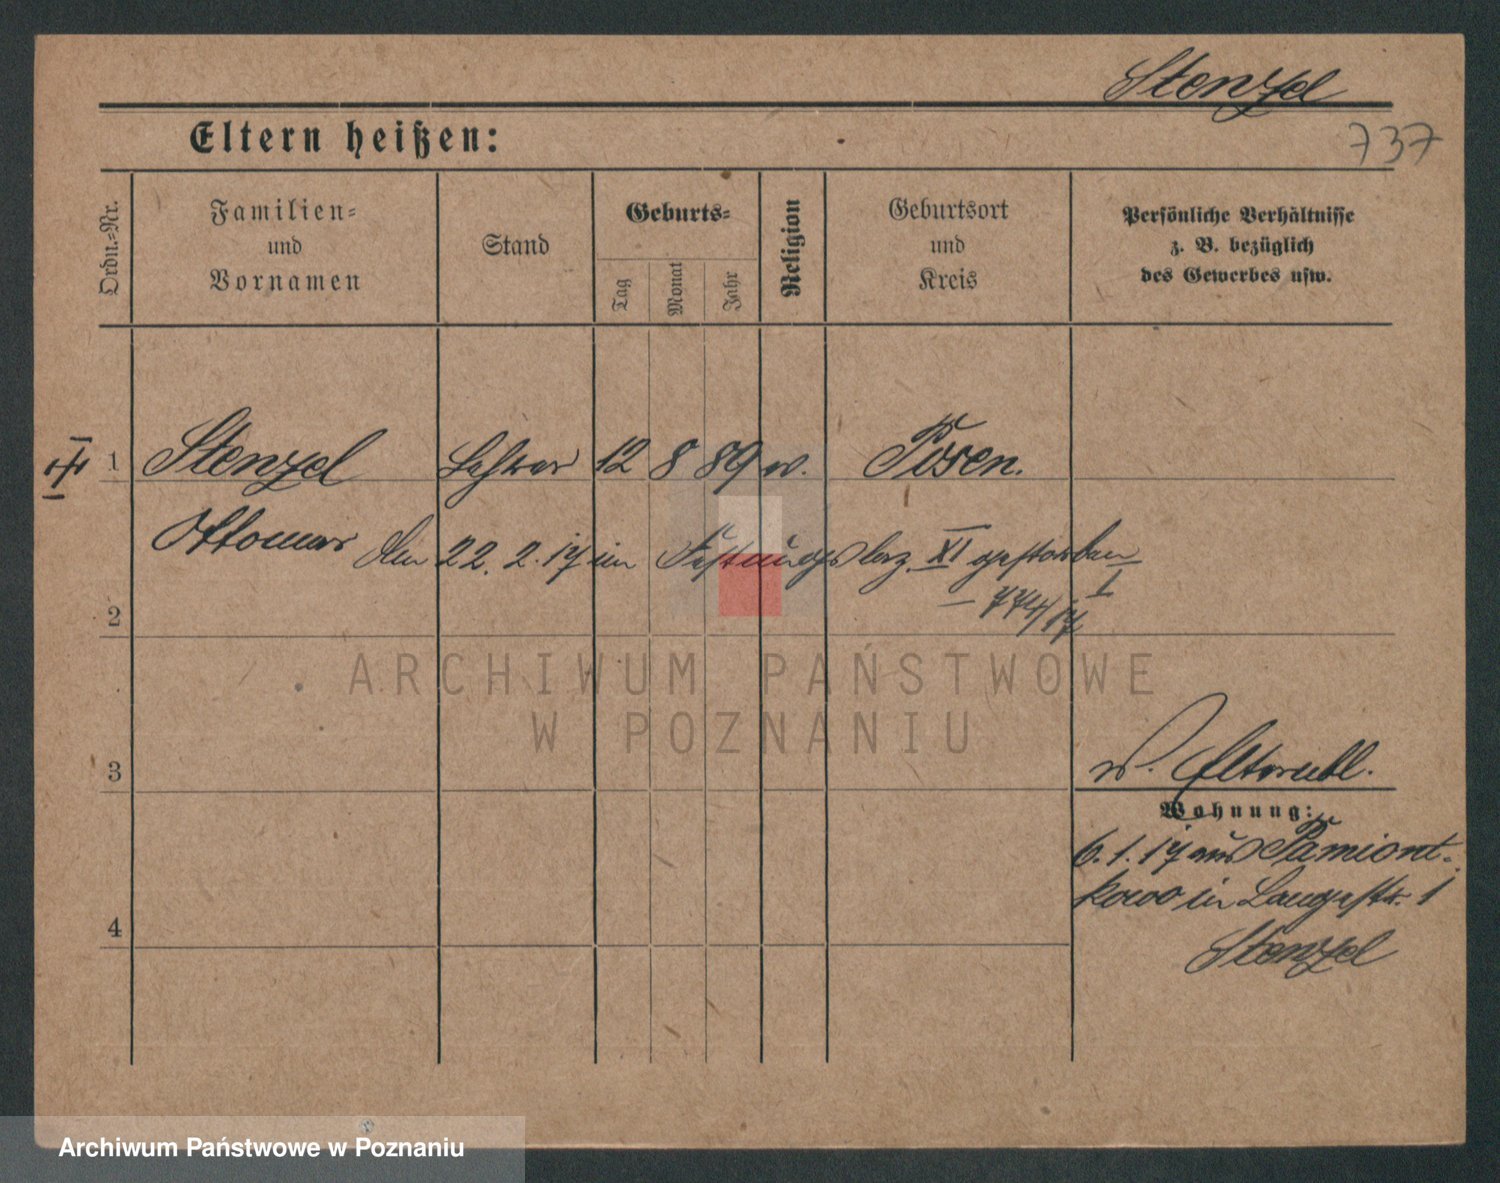 Stenzel
737
Eltern heißen:
Ordn.-Nr.
Familien-
und
Vornamen
Stand
Geburts-
Tag
Monat
Jahr
Religion
Geburtsort
und
Kreis
Persönliche Verhältnisse
z. B. bezüglich
des Gewerbes usw.
1 Stenzel Lehrer 12 8 89 Posen.
Ottomar den 22. 2. 17 im Festungslaz. XI gestorben
I
774/17
2
ARCHIWUM PAŃSTWOWE
W POZNANIU
3
Wohnung:
6. 1. 17 aus Pamiont-
kowo in Langestr. 1
Stenzel
4
Archiwum Państwowe w Poznaniu